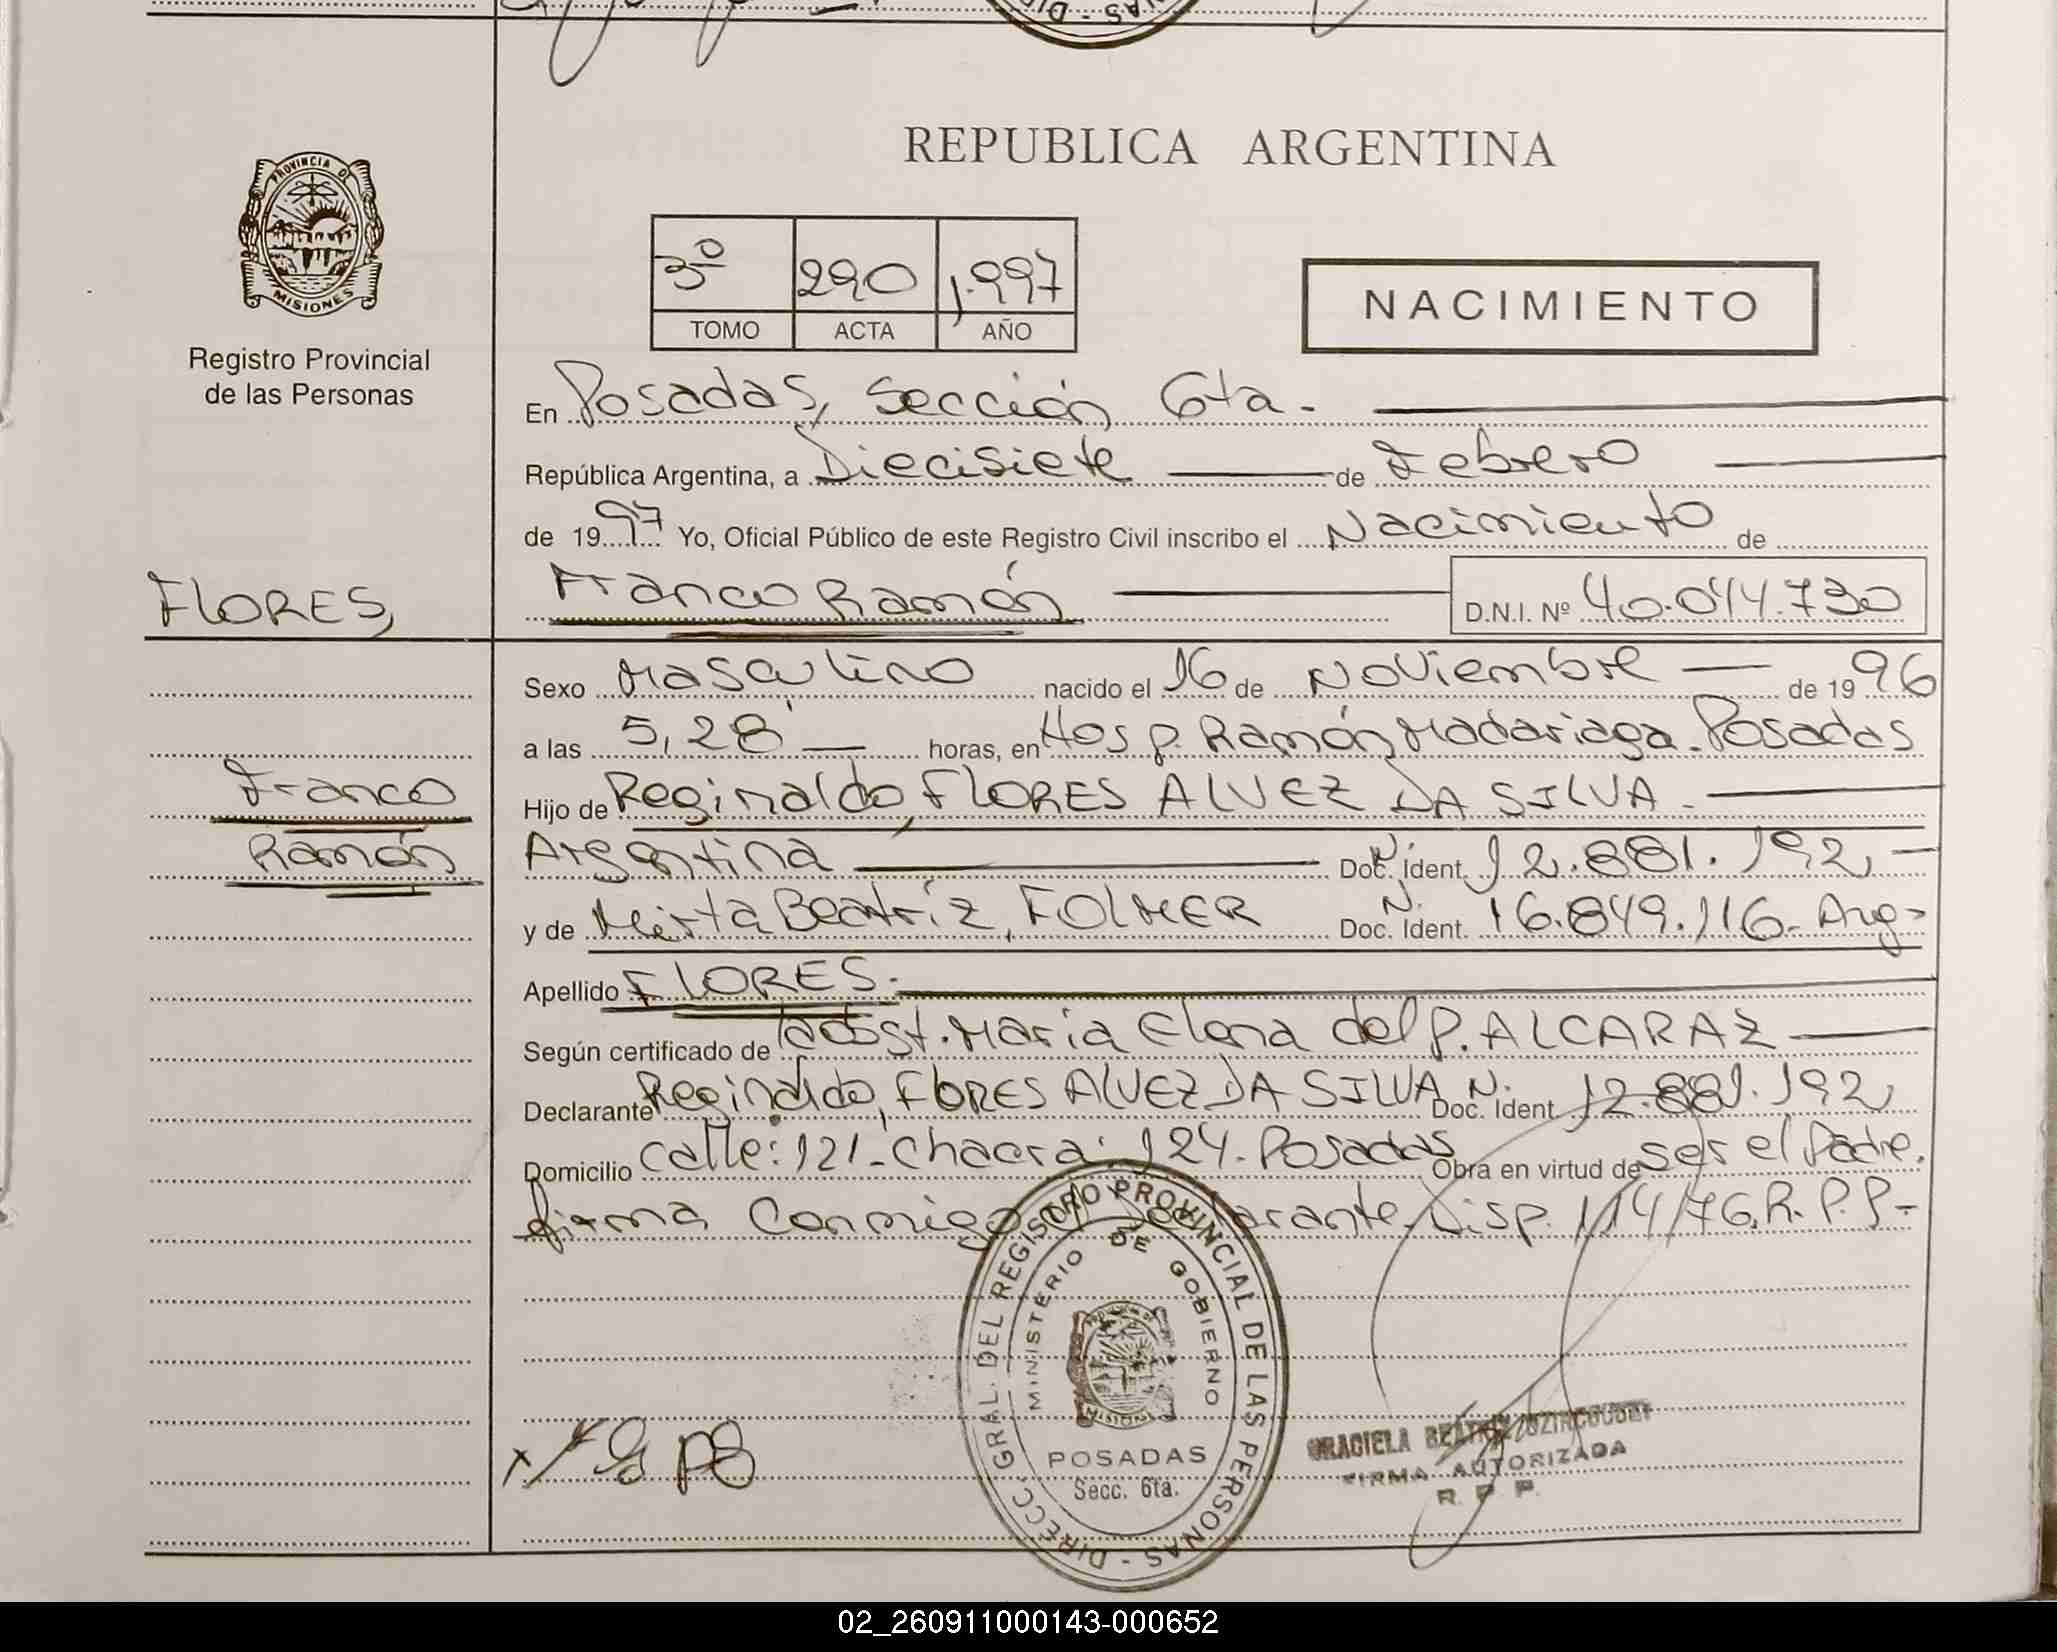 REPUBLICA ARGENTINA
PROVINCIA DE
MISIONES
Registro Provincial
de las Personas
3º 290 1.997
TOMO ACTA AÑO
NACIMIENTO
En Posadas, Sección 6ta.
República Argentina, a Diecisiete de Febrero
de 1997 Yo, Oficial Público de este Registro Civil inscribo el Nacimiento de
FLORES, Franco Ramón D.N.I. Nº 40.044.730
Sexo Masculino nacido el 16 de Noviembre de 1996
a las 5,28' horas, en Hosp. Ramón Madariaga. Posadas
Franco Hijo de Reginaldo, FLORES ALVEZ DA SILVA.
Ramón Argentina Doc. Ident. N. 12.881.192
y de Mirta Beatríz, FOLMER Doc. Ident. N. 16.849.116- Arg-
Apellido FLORES.
Según certificado de obst. María Elena del P. ALCARAZ
Declarante Reginaldo, FLORES ALVEZ DA SILVA Doc. Ident N. 12.881.192
Domicilio Calle: 121- Chacra: 124. Posadas Obra en virtud de ser el Padre.
firma Conmigo Declarante. Disp. 114/76.R.P.P-
DIRECC. GRAL. DEL REGISTRO PROVINCIAL DE LAS PERSONAS -
MINISTERIO DE GOBIERNO
MISIONES
POSADAS
Secc. 6ta.
GRACIELA BEATRIZ
FIRMA AUTORIZADA
R. P. P.
02_260911000143-000652